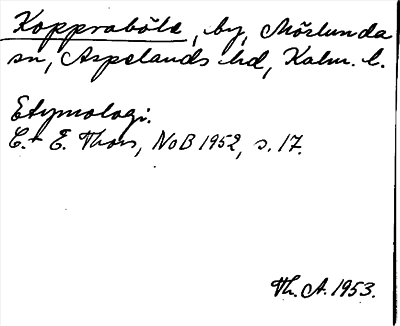 Koppraböle, by, Mörlunda
sn, Aspelands hd, Kalm. l.
Etymologi.
C.-E. Thors, NoB 1952, s. 17.
Th. A. 1953.